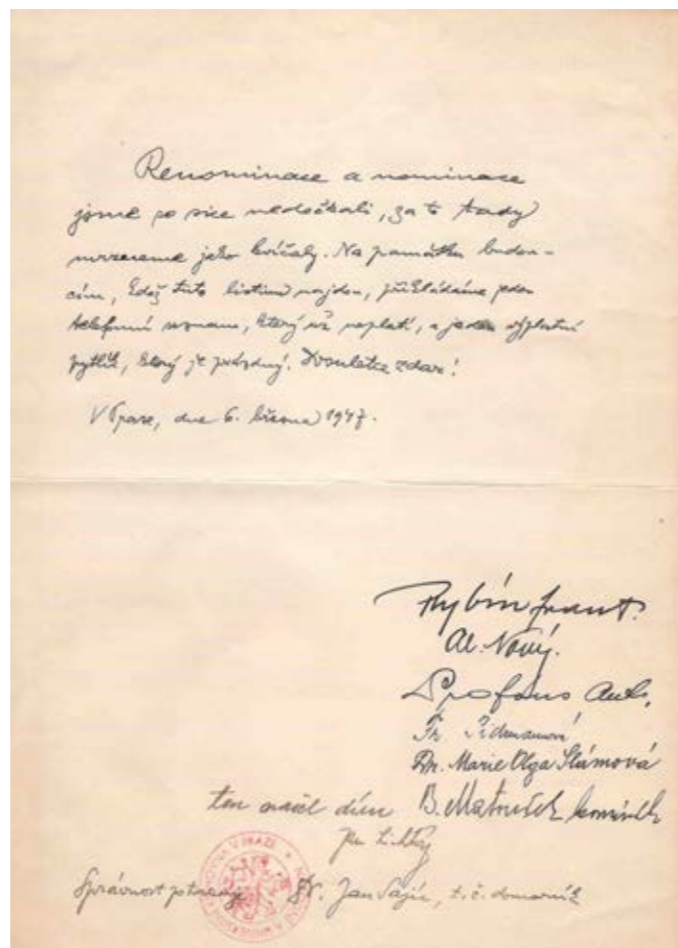 Renominace a nominace
jsme se sice nedočkali, za to tady
mrzneme jako kvíčaly. Na památku budou-
cím, kdož tuto listinu najdou, přikládáme jeden
telefonní seznam, který už neplatí, a jeden výplatní
pytlík, který je prázdný. Dvouletce zdar!
V Praze, dne 6. března 1947.
Rybín Frant.
Al. Nový.
Profous Ant.
Dr. Marie Olga Slámová
ten našel dům B. Matoušek kominík
V PRAZE
Správnost potvrzuje Dr. Jan t. č. domovník